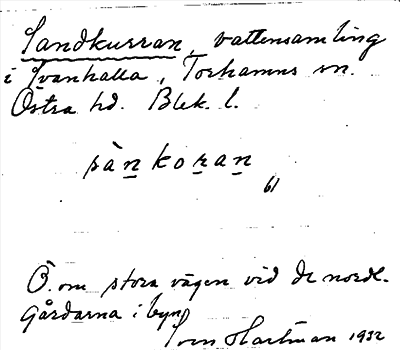 Sandkurran, vattensamling
i Ivanhalla, Torhamns sn.
Östra hd. Blek. l.
sànkoran
61
Ö. om stora vägen vid de nordl.
gårdarna i byn
Sven Hartman 1932